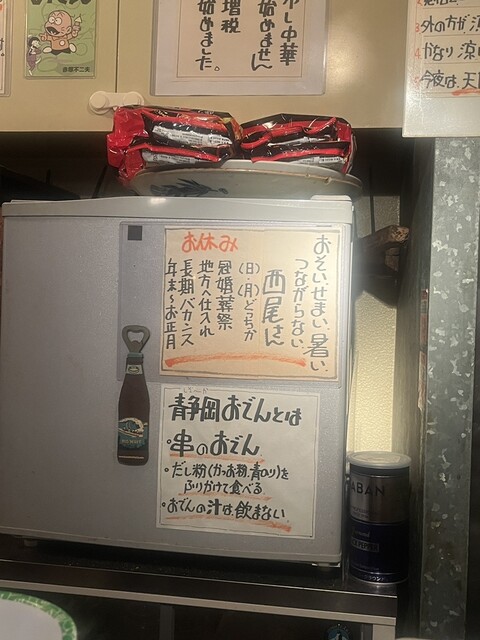 冷し中華
始めません
増税
始めました。
赤塚不二夫
外の方が涼
かなり涼
今夜は、天
おそい、せまい、暑い、
つながらない、
西尾さん
お休み
(日)・(月)どっちか
冠婚葬祭
地方へ仕入れ
長期バカンス
年末〜お正月
静岡おでんとは
・串のおでん
・だし粉(かつお粉、青のり)を
ふりかけて食べる
・おでんの汁は飲まない
ABAN